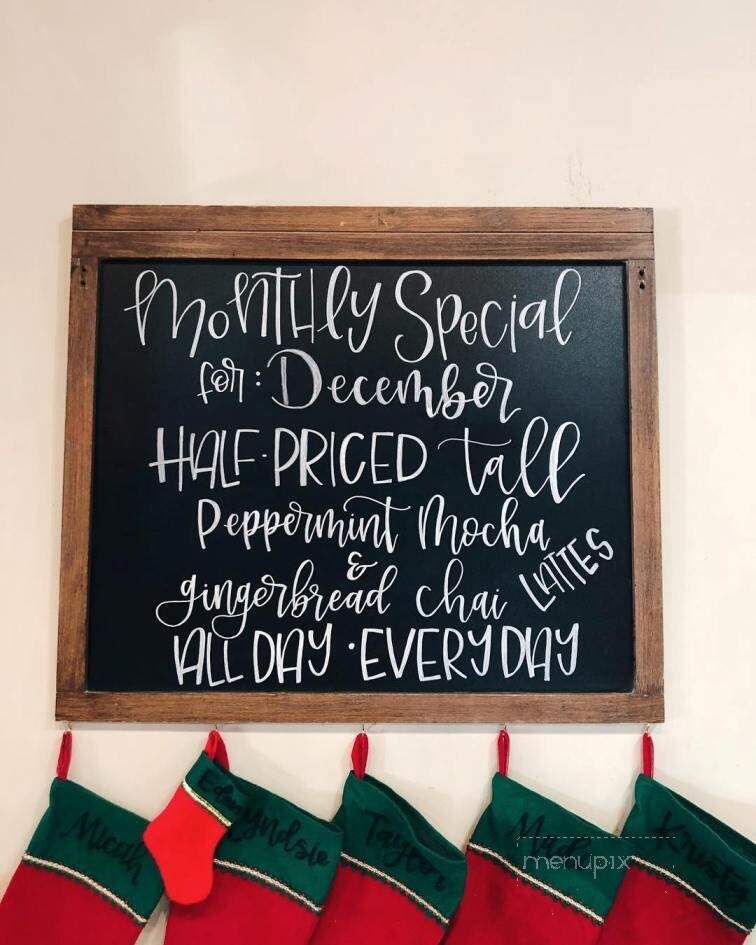 Monthly Special
for: December
HALF-PRICED tall
Peppermint Mocha
&
gingerbread chai LATTES
ALL DAY · EVERYDAY
Micah
Lyndsie
Taylor
Kristy
menupix